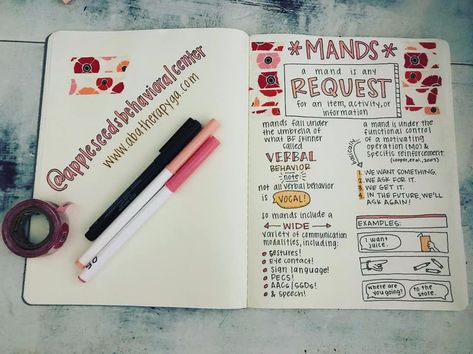 @appleseedsbehavioralcenter
www.abatherapyga.com
*MANDS*
a mand is any
REQUEST
for an item, activity, or
information
mands fall under
the umbrella of
what BF Skinner
called
VERBAL
BEHAVIOR
note:
not all verbal behavior
is VOCAL!
so mands include a
WIDE
variety of communication
modalities, including:
gestures!
eye contact!
sign language!
PECS!
AACs/SGDs!
& speech!
a mand is under the
functional control
of a motivating
operation (MO) &
specific reinforcement.
(cooper, et al., 2007)
basically
1. WE WANT SOMETHING.
2. WE ASK FOR IT.
3. WE GET IT.
4. IN THE FUTURE, WE'LL
ASK AGAIN!
EXAMPLES:
I want
juice.
where are
you going?
to the
store.